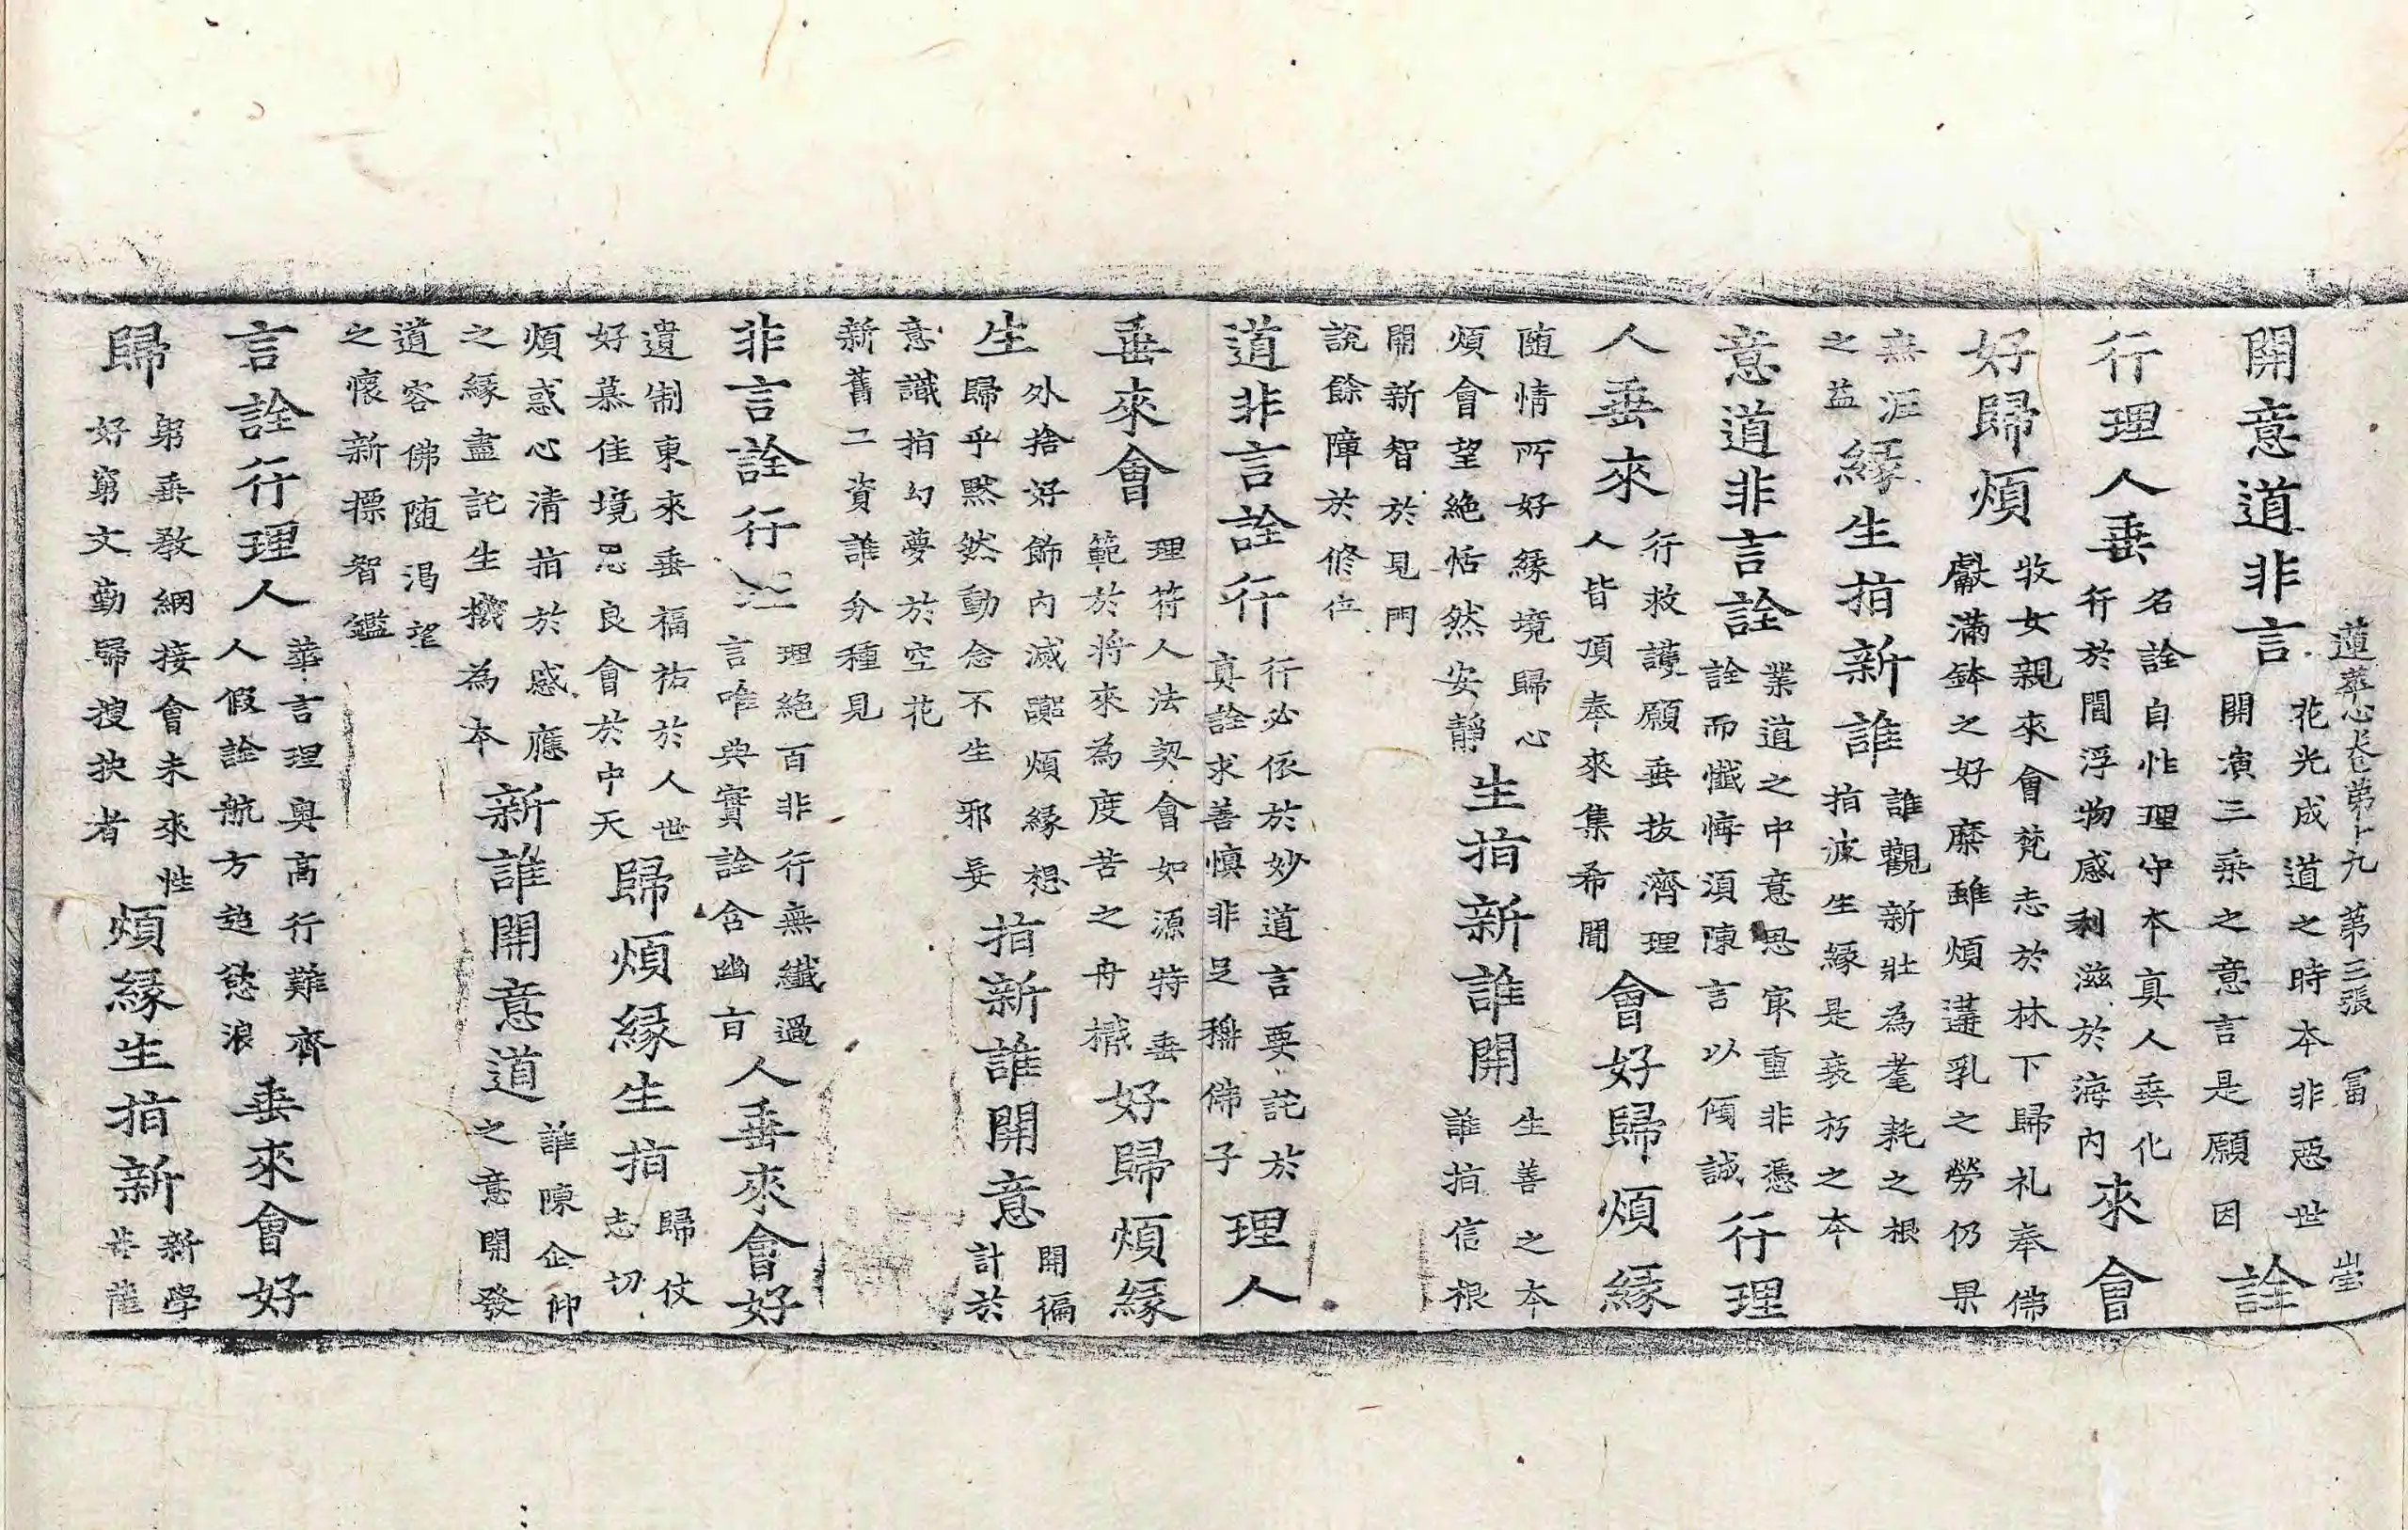 蓮華心卷第十九 第三張 冨 崇
開意道非言
花光成道之時本非惡世
開演三乘之意言是願因
詮
行理人垂
名詮自性理守本真人垂化
行於閻浮物感利滋於海內
來會
好歸煩
牧女親來會梵志於林下歸礼奉佛
獻滿鉢之好糜雖煩遘乳之勞仍果
無涯
之益
緣生指新誰
誰觀新壯為耄耗之根
指波生緣是衰朽之本
意道非言詮
業道之中意思㝡重非憑
詮而懺悔湏陳言以傾誠
行理
人垂來
行救護願垂抜濟理
人皆頂奉來集希聞
會好歸煩緣
随情所好緣境歸心
煩會望絕恬然安靜
生指新誰開
生善之本
誰指信根
開新智於見門
說餘障於修位
道非言詮行
行必依於妙道言要詑於
真詮求善慎非足稱佛子
理人
垂來會
理符人法契會如源特垂
範於將來為度苦之舟檝
好歸煩緣
生
外捨好飾內滅諂煩緣想
歸乎黙然動念不生邪妄
指新誰開意
開徧
計於
意識指幻夢於空花
新舊二資誰分種見
非言詮行
理絕百非行無纖過
言唯典實詮含幽㫖
人垂來會好
遺制東來垂福祐於人世
好慕佳境忍良會於中天
歸煩緣生指
歸仗
志切
煩惑心清指於感應
之緣盡詑生機為本
新誰開意道
誰陳企仰
之意開發
道容佛随渴望
之懷新標智鑑
言詮行理人
華言理奥高行難齊
人假詮航方超慾浪
垂來會好
歸
躬垂敎綱接會未來性
好窮文勤歸搜抉者
煩緣生指新
新學